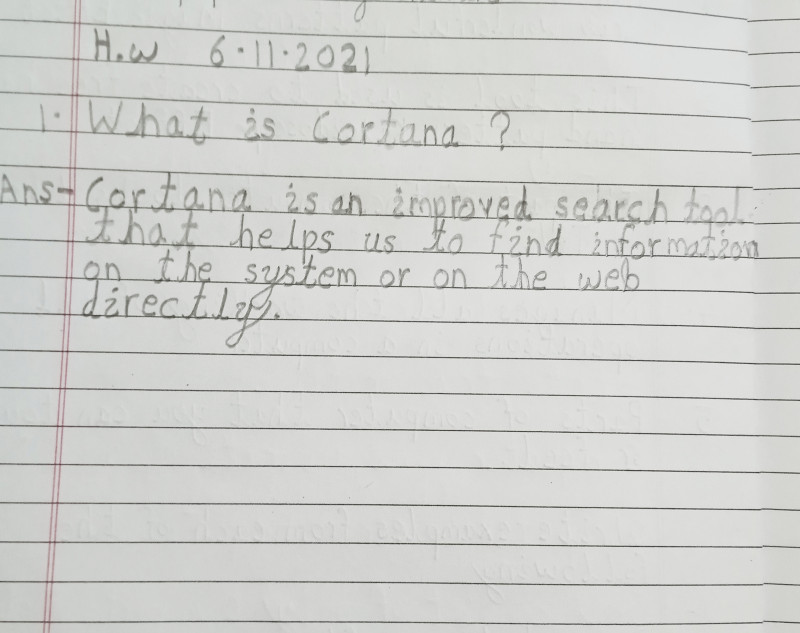 H.w 6.11.2021
1. What is Cortana ?
Ans- Cortana is an improved search tool
that helps us to find information
on the system or on the web
directly.